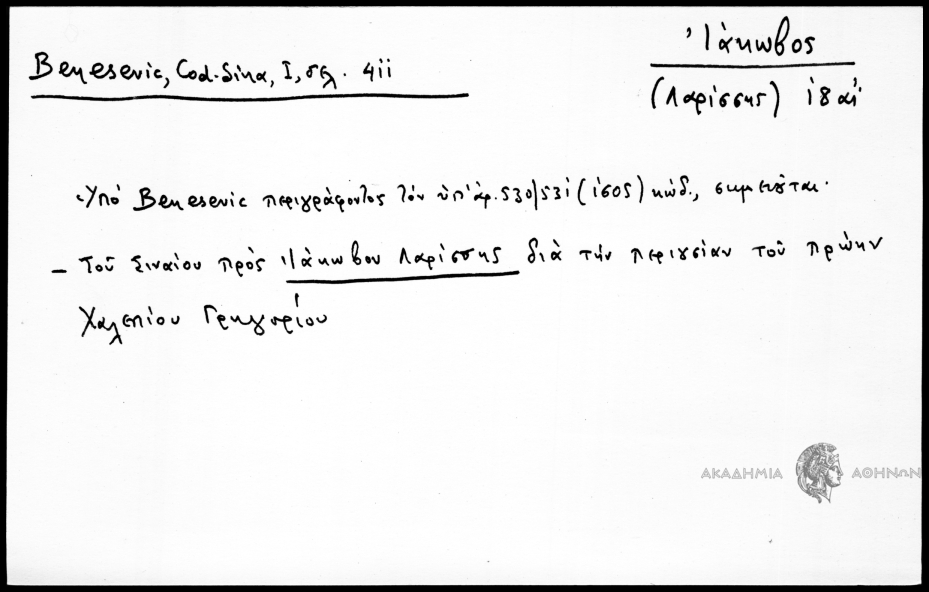 Benesevic, Cod. Sina, I, σελ. 411
Ἰάκωβος
(Λαρίσσης) 18 αἰ
Ὑπό Benesevic περιγράφοντος τόν ὑπ' ἀρ. 530/531 (1505) κώδ., σημειοῦται·
– Τοῦ Σιναίου πρός Ἰάκωβον Λαρίσσης διά τήν περιουσίαν τοῦ πρώην
Χαλεπίου Γρηγορίου
ΑΚΑΔΗΜΙΑ ΑΘΗΝΩΝ